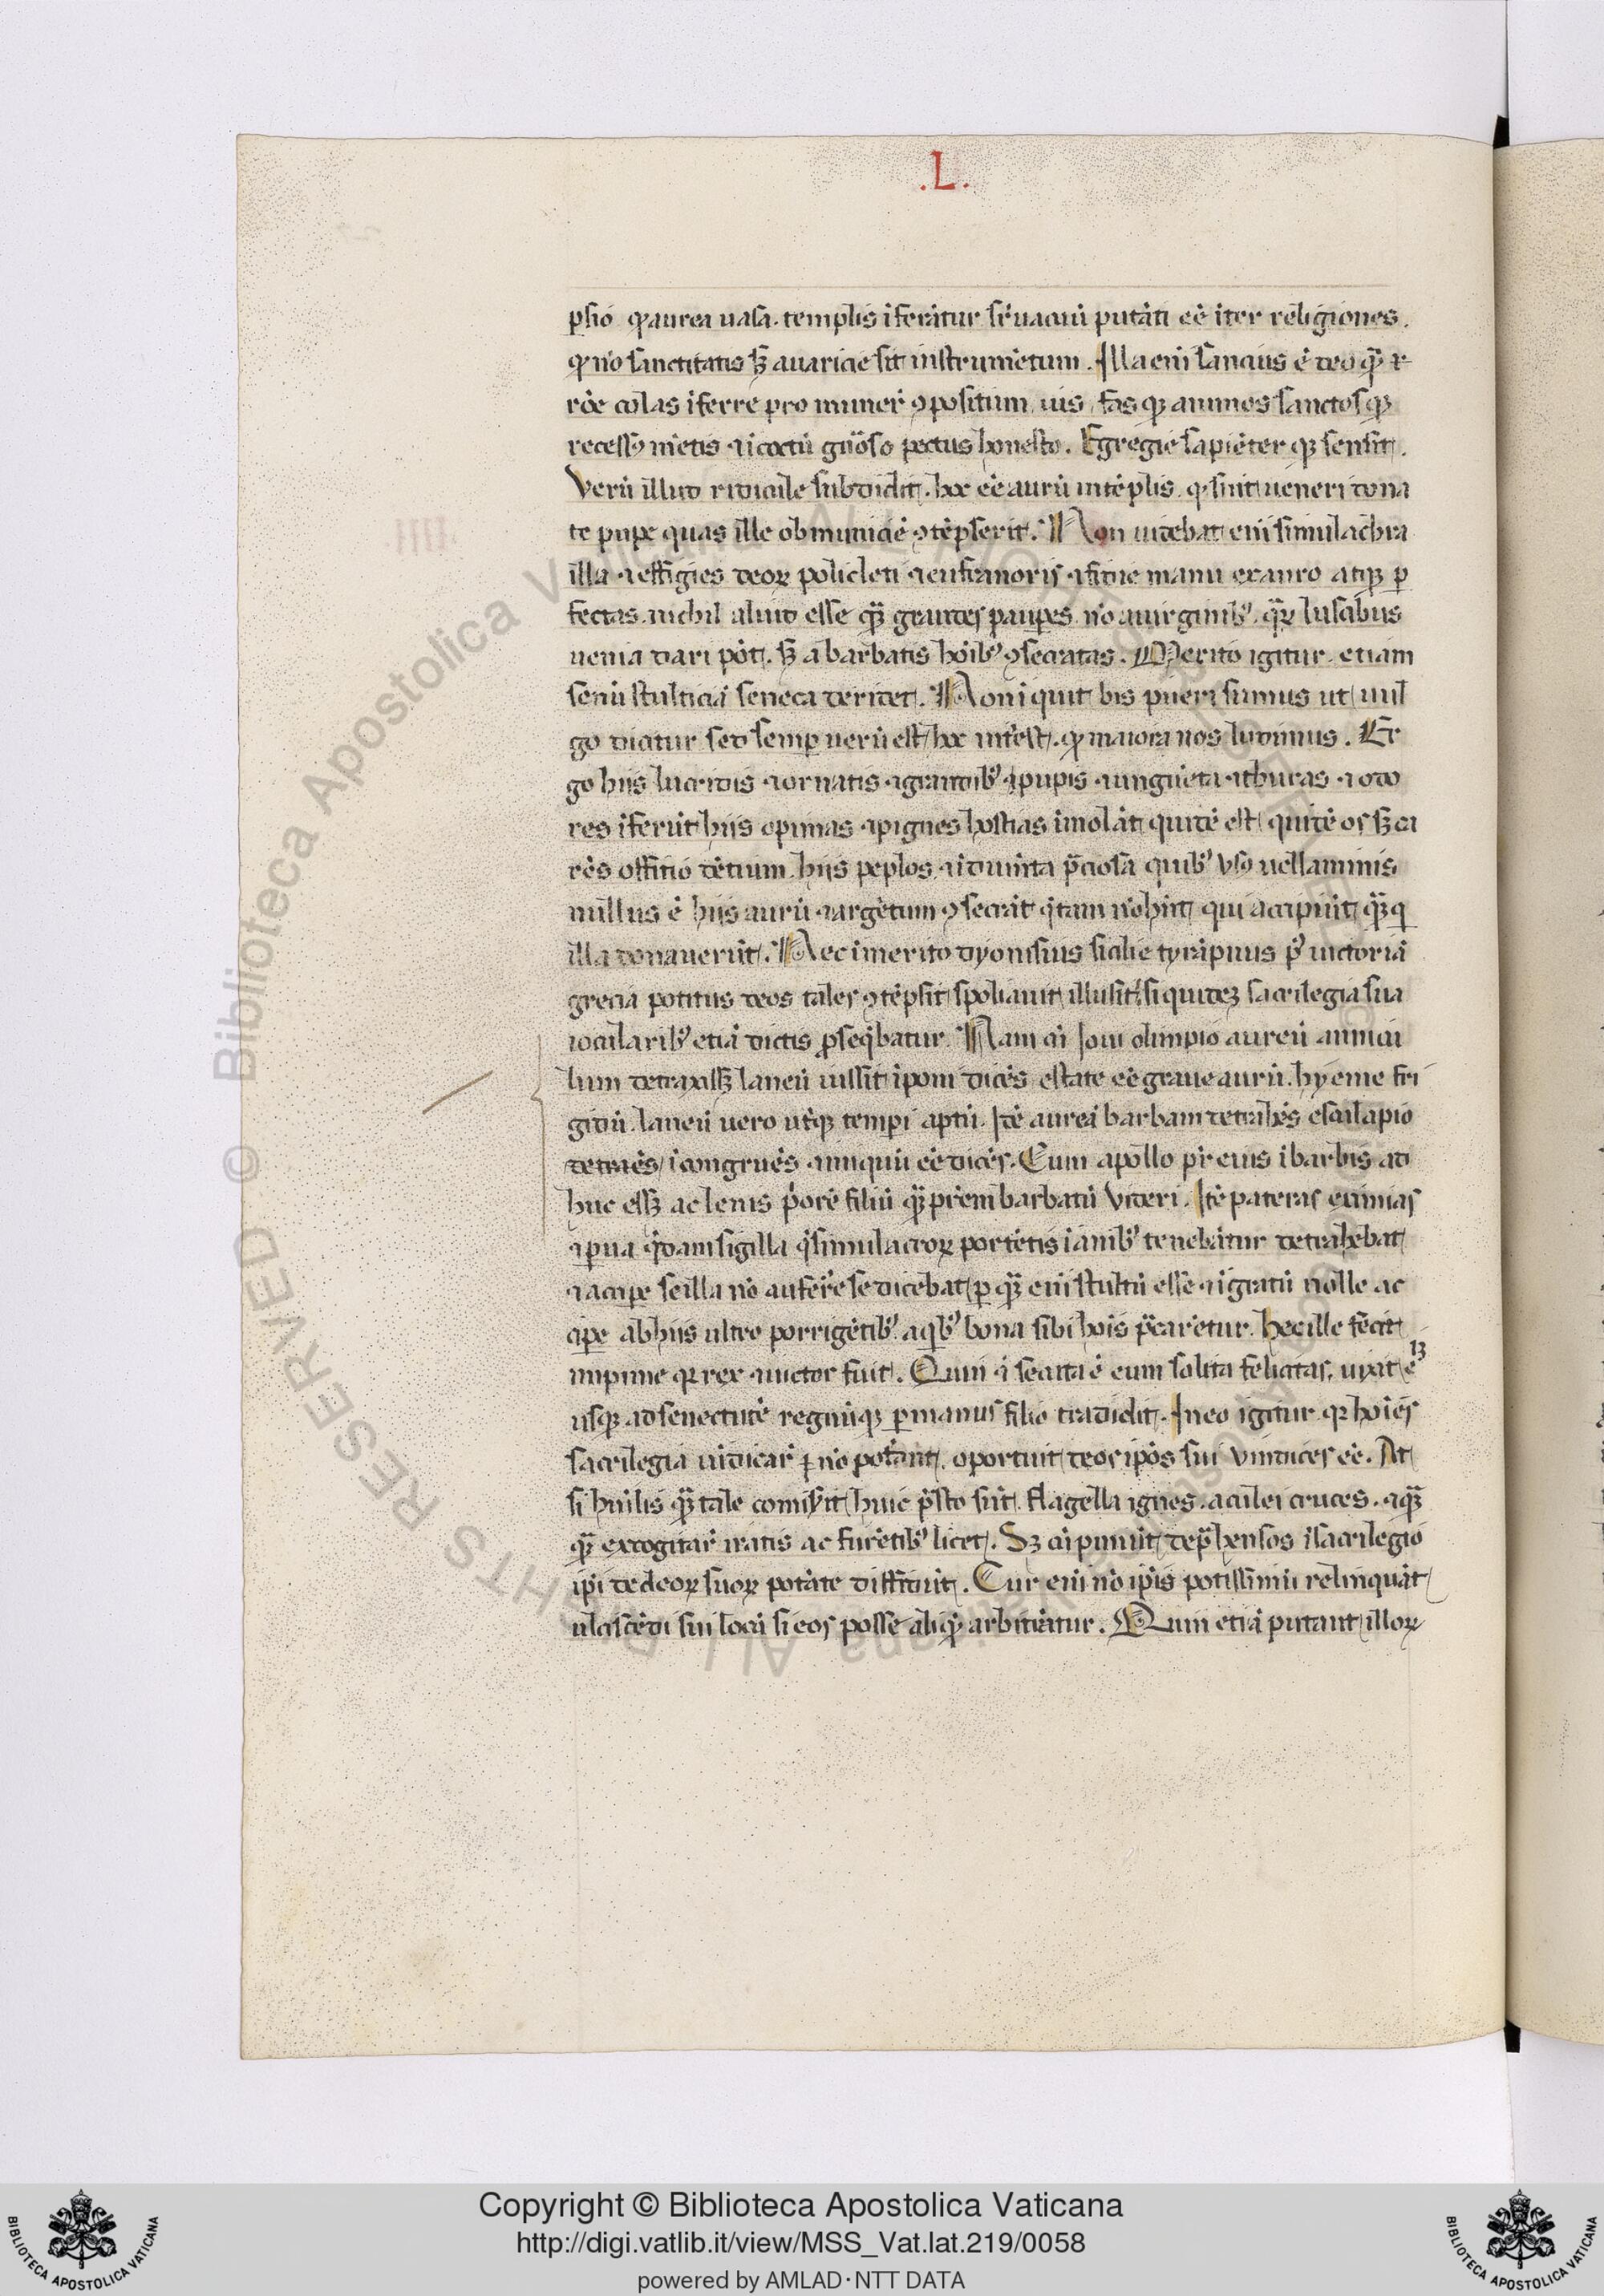 .L.
psio q aurea uasa templis iferātur supuacuū putāti eē iter religiones.
q nō sanctitatis sꝫ auaricie sit instrumētum. Illa eni sanctius ē deo qͥ r
rōe colas iferre pro muner ꝯpositum ius fas qꝫ animos sanctos qꝫ
recessꝰ mētis ⁊ icoctū gnōso pectus honesto. Egregie sapiēter qꝫ sensit.
Verū illud ridicule subdidit. hoc eē aurū in tēplis q sint ueneri dona
te pupe quas ille ob municiē ꝯtēpserit. Non uidebat eni simulachra
illa ⁊ effigies deoꝝ policleti ⁊ eufranoris ⁊ fidie manu ex auro atqꝫ p
fectas nichil aliud esse qͣꝫ grandes paupes nō a uirginibꝰ qͣꝝ lusibus
uenia dari pōt. sꝫ a barbatis hōibꝰ ꝯsecratas. Merito igitur etiam
senū stulticiā seneca deridet. Non iquit bis pueri sumus ut uul
go dicitur sed semp uerū est hoc intēst. q maiora nos ludimus. Er
go hiis lucridis ⁊ ornatis ⁊ grandibꝰ ⁊ pupis ⁊ unguēta ⁊ thuras ⁊ odo
res iferūt hiis opimas ⁊ pignes hostias imolāt quidē est quidē os sꝫ ca
rēs offitio dētium hiis peplos ⁊ idumēta pͥciosa quibꝰ usꝰ uellaminis
nullus ē hiis aurū ⁊ argētum ꝯsecrāt q tam nō hūt qui accipiūt qͣꝫ q
illa donauerūt. Nec imerito dyonisius sicilie tyrāpnus pꝰ uictoriā
grecia potitus deos tales ꝯtēpsit spoliauit illusit si quidez sacrilegia sua
iocularibꝰ etiā dictis pseqͥbatur. Nam cū Ioui olimpio aureū amicu
lum detraxissꝫ laneū iussit iponi dicēs estate eē graue aurū. hyeme fri
gidū. laneū uero utͥqꝫ tempi aptū. Itē aureā barbam detrahēs esculapio
detraēs icongruēs ⁊ iniquū eē dicēs. Cum apollo pr eius ibarbis ad
huc essꝫ ac lenis pͥorē filiū qͣꝫ prēm barbatū uideri. Itē pateras eximias
⁊ pua qͥdam sigilla qͥ simulacroꝝ portētis ī manibꝰ tenebātur detrahebat
⁊ accipe se illa nō auferre se dicebat p qͣꝫ eni stultū esse ⁊ igratū nolle ac
cipe ab hiis ultro porrigētibꝰ a qͥbꝰ bona sibi hoīs pͥcarētur. Hec ille fecit
impune qꝛ rex ⁊ uictor fuit. Quin ⁊ secuta ē eum solita felicitas. uixit eͥꝫ
usqꝫ ad senectutē regnūqꝫ p manus filio tradidit. In eo igitur qꝛ hoīes
sacrilegia uidicar nō potant. oportuit deos ipōs sui uindices eē. At
si huīlis qͣꝫ tale comisit huic pͥsto sūt. flagella ignes. aculei cruces. ⁊ qͣꝫ
qͣꝫ excogitar iratis ac furētibꝰ licet. Sꝫ cū puniūt dephensos i sacrilegio
ipi de deoꝝ suoꝝ potāte diffidūt. Cur eni nō ipīs potissimū relinquāt
ulciscēdi sui locū si eos posse aliqͥ arbitrātur. Quin etiā putant illoꝝ
Copyright © Biblioteca Apostolica Vaticana
http://digi.vatlib.it/view/MSS_Vat.lat.219/0058
powered by AMLAD·NTT DATA